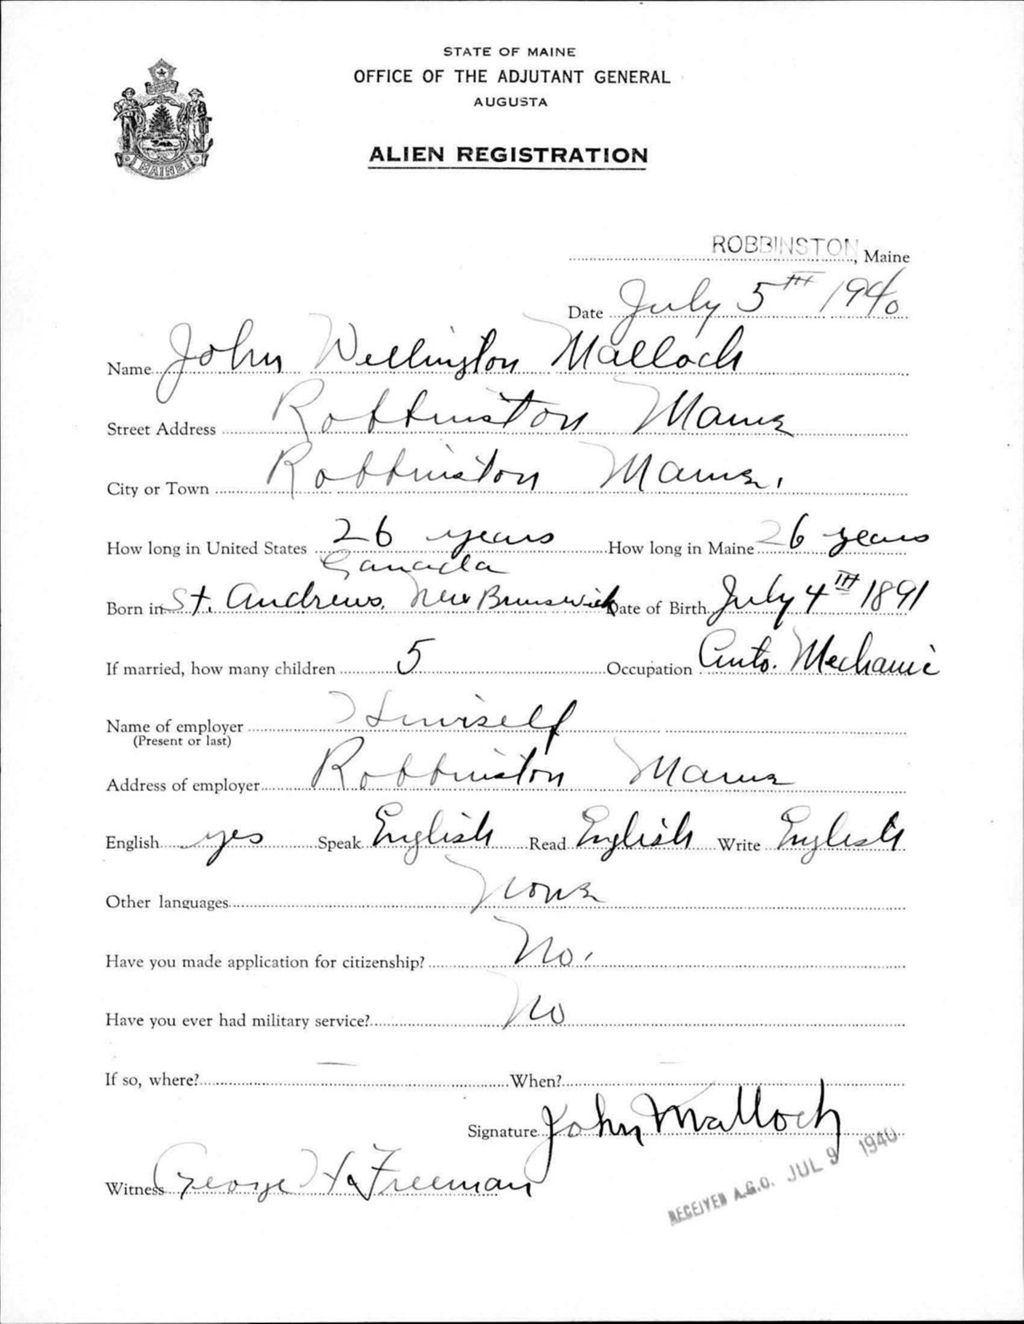 STATE OF MAINE
OFFICE OF THE ADJUTANT GENERAL
AUGUSTA
ALIEN REGISTRATION
MAINE
ROBBINSTON, Maine
Date July 5TH 1940
Name John Wellington Malloch
Street Address Robbinston Maine
City or Town Robbinston Maine.
How long in United States 26 years How long in Maine 26 years
Canada
Born in St. Andrews, New Brunswick Date of Birth July 4TH 1891
If married, how many children 5 Occupation Auto. Mechanic
Name of employer Himself
(Present or last)
Address of employer Robbinston Maine
English yes Speak English Read English Write English
Other languages None
Have you made application for citizenship? No.
Have you ever had military service? No
If so, where? — When? —
Signature John Malloch
Witness George H Freeman
RECEIVED A.G.O. JUL 9 1940